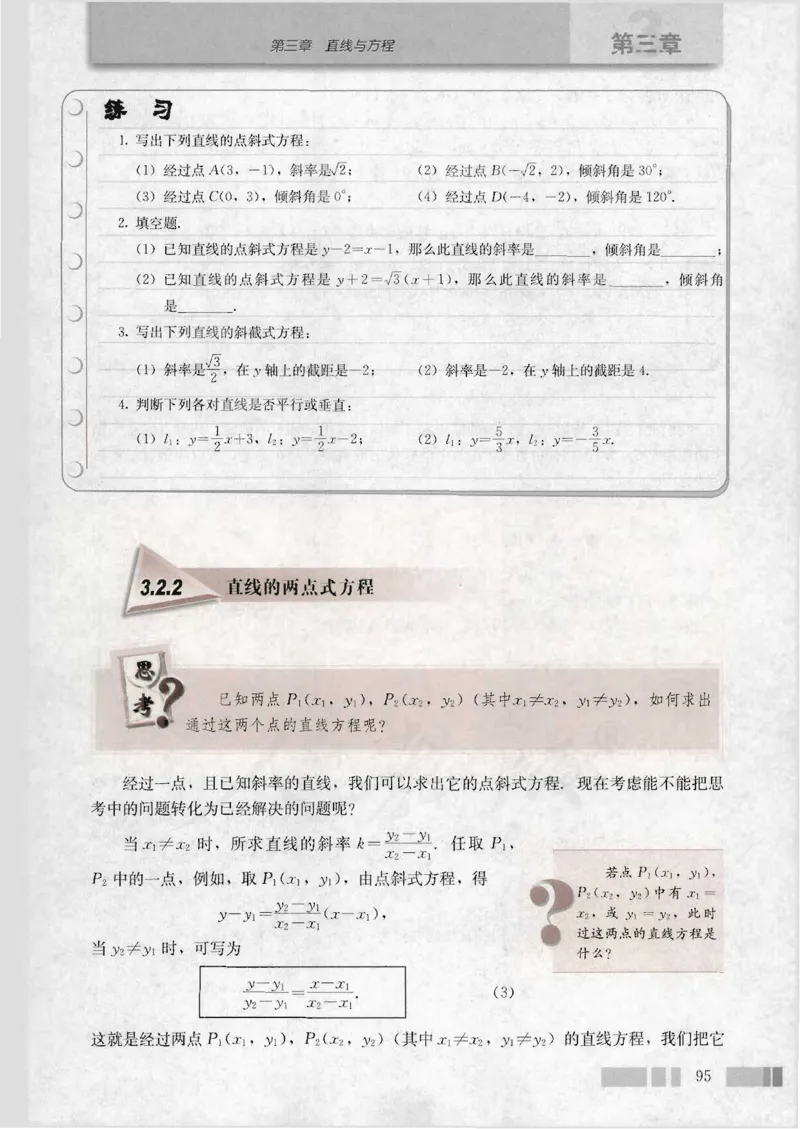 第三章 直线与方程
第三章
练 习
1. 写出下列直线的点斜式方程:
(1) 经过点 A(3, -1), 斜率是√2;
(2) 经过点 B(-√2, 2), 倾斜角是 30°;
(3) 经过点 C(0, 3), 倾斜角是 0°;
(4) 经过点 D(-4, -2), 倾斜角是 120°.
2. 填空题.
(1) 已知直线的点斜式方程是 y-2=x-1, 那么此直线的斜率是______, 倾斜角是______;
(2) 已知直线的点斜式方程是 y+2=√3(x+1), 那么此直线的斜率是______, 倾斜角
是______.
3. 写出下列直线的斜截式方程:
(1) 斜率是√3/2, 在 y 轴上的截距是-2;
(2) 斜率是-2, 在 y 轴上的截距是 4.
4. 判断下列各对直线是否平行或垂直:
(1) l₁: y=1/2x+3, l₂: y=1/2x-2;
(2) l₁: y=5/3x, l₂: y=-3/5x.
3.2.2 直线的两点式方程
思考?
已知两点 P₁(x₁, y₁), P₂(x₂, y₂) (其中x₁≠x₂, y₁≠y₂), 如何求出
通过这两个点的直线方程呢?
经过一点, 且已知斜率的直线, 我们可以求出它的点斜式方程. 现在考虑能不能把思
考中的问题转化为已经解决的问题呢?
当 x₁≠x₂ 时, 所求直线的斜率 k=(y₂-y₁)/(x₂-x₁). 任取 P₁,
P₂ 中的一点, 例如, 取 P₁(x₁, y₁), 由点斜式方程, 得
y-y₁=(y₂-y₁)/(x₂-x₁)(x-x₁),
当 y₂≠y₁ 时, 可写为
(y-y₁)/(y₂-y₁)=(x-x₁)/(x₂-x₁). (3)
?
若点 P₁(x₁, y₁),
P₂(x₂, y₂)中有 x₁=
x₂, 或 y₁=y₂, 此时
过这两点的直线方程是
什么?
这就是经过两点 P₁(x₁, y₁), P₂(x₂, y₂) (其中 x₁≠x₂, y₁≠y₂) 的直线方程, 我们把它
95